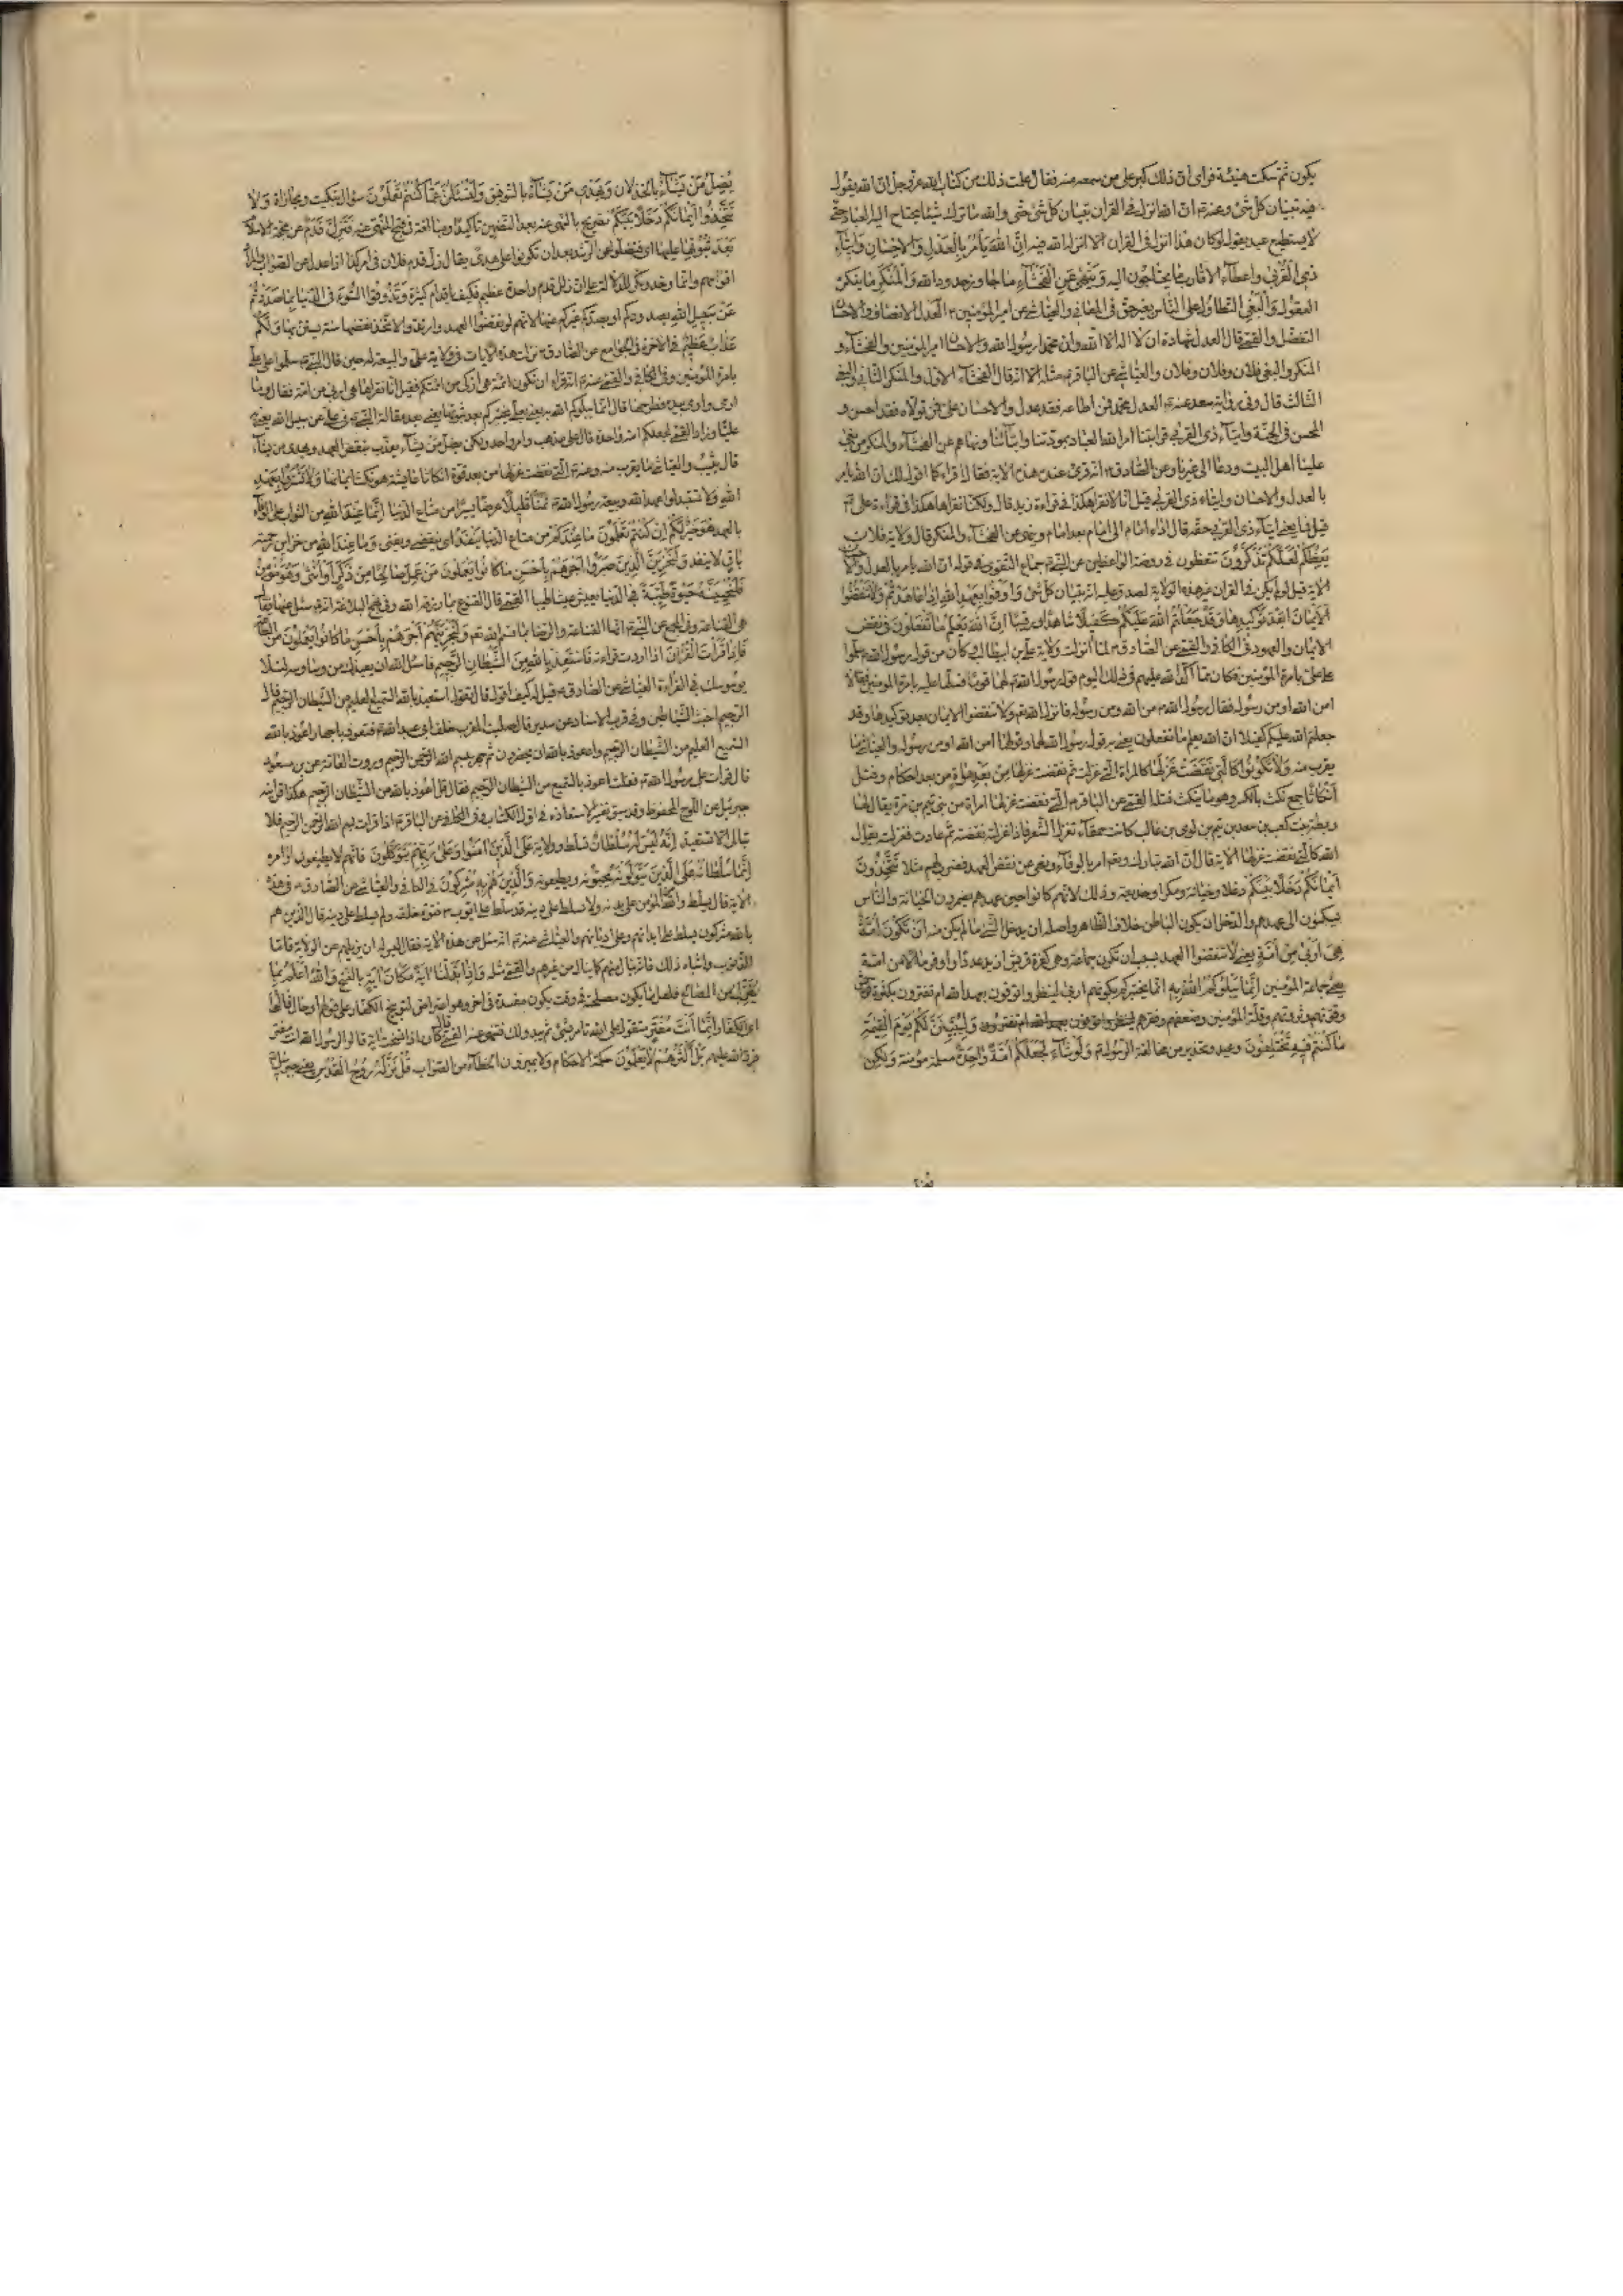 يكون ثم سكت هنيئة فراى ان ذلك كبر على من سمعه منه فقال علمت ذلك من كتاب الله عز وجل ان الله يقول
فيه تبيان كل شئ وعنه ۴ ان الله انزل فى القران تبيان كل شئ حتى والله ما ترك شيئا يحتاج اليه العباد حتى
لا يستطيع عبد يقول لو كان هذا انزل فى القران الا انزله الله فيه اِنَّ اللهَ يَأمُرُ بِالْعَدْلِ وَالاِحْسَانِ وَاِيتَآءِ
ذِى الْقُرْبَى واعطاء الاقارب ما يحتاجون اليه وَيَنْهَى عَنِ الْفَحْشَآءِ ما جاوز حدود الله وَالْمُنْكَرِ ما ينكره
العقول وَالْبَغْىِ التطاول على الناس بغير حق فى المعانى والعياشى عن امير المؤمنين ۴ العدل الانصاف والاحسان
التفضل والقمى قال العدل شهادة ان لا اله الا الله وان محمدا رسول الله والاحسان امير المؤمنين والفحشاء و
المنكر والبغى فلان وفلان وفلان والعياشى عن الباقر ۴ مثله الا انه قال الفحشاء الاول والمنكر الثانى والبغى
الثالث قال وفى رواية سعد عنه ۴ العدل محمد فمن اطاعه فقد عدل والاحسان على فمن تولاه فقد احسن و
المحسن فى الجنة وايتاء ذى القربى قرابتنا امر الله العباد بمودتنا وايتائنا ونهاهم عن الفحشاء والمنكر من بغى
علينا اهل البيت ودعا الى غيرنا وعن الصادق ۴ انه قرئ عنده هذه الاية فقال اقراء كما اقول لك ان الله يامر
بالعدل والاحسان وايتاء ذى القربى قيل انا لا نقرا هكذا فى قراءة زيد قال ولكنا نقراها هكذا فى قراءة على ۴
قيل فما يعنى ايتاء ذى القربى حقه قال اداء امام الى امام بعد امام وينهى عن الفحشاء والمنكر قال ولاية فلان
يَعِظُكُمْ لَعَلَّكُمْ تَذَكَّرُونَ تتعظون فى روضة الواعظين عن النبى ۴ جماع التقوى فى قوله ان الله يامر بالعدل والاحسان
الاية قيل لو لم يكن فى القران غير هذه الاية لصدق عليه انه تبيان كل شئ وَاَوْفُوا بِعَهْدِ اللهِ اِذَا عَاهَدْتُمْ وَلاَ تَنْقُضُوا
الاَيْمَانَ بَعْدَ تَوْكِيدِهَا وَقَدْ جَعَلْتُمُ اللهَ عَلَيْكُمْ كَفِيلاً شاهدا ورقيبا اِنَّ اللهَ يَعْلَمُ مَا تَفْعَلُونَ فى نقض
الايمان والعهود فى الكافى والقمى عن الصادق ۴ لما انزلت ولاية على بن ابيطالب وكان من قول رسول الله ۴ سلموا
على على بامرة المؤمنين فكان مما اكد الله عليهم فى ذلك اليوم قول رسول الله ۴ لهما قوما فسلما عليه بامرة المؤمنين فقالا
امن الله او من رسوله فقال رسول الله ۴ من الله ومن رسوله فانزل الله ۴ ولا تنقضوا الايمان بعد توكيدها وقد
جعلتم الله عليكم كفيلا ان الله يعلم ما تفعلون يعنى به قول رسول الله لهما وقولهما امن الله او من رسوله والعياشى ما
يقرب منه وَلاَ تَكُونُوا كَالَّتِى نَقَضَتْ غَزْلَهَا كالمراة التى غزلت ثم نقضت غزلها مِنْ بَعْدِ قُوَّةٍ من بعد احكام وفتل
اَنْكَاثًا جمع نكث بالكسر وهو ما ينكث فتله القمى عن الباقر ۴ التى نقضت غزلها امراة من بنى تيم بن مرة يقال لها
ريطة بنت كعب بن سعد بن تيم بن لوى بن غالب كانت حمقاء تغزل الشعر فاذا غزلته نقضته ثم عادت فغزلته يقول
الله كالتى نقضت غزلها الاية قال ان الله تبارك وتعم امر بالوفاء ونهى عن نقض العهد فضرب لهم مثلا تَتَّخِذُونَ
اَيْمَانَكُمْ دَخَلاً بَيْنَكُمْ دغلا وخيانة ومكرا وخديعة وذلك لانهم كانوا حين عهدهم يضمرون الخيانة والناس
يسكنون الى عهدهم والدخل ان يكون الباطن خلاف الظاهر واصله ان يدخل الشئ ما لم يكن منه اَنْ تَكُونَ اُمَّةٌ
هِىَ اَرْبَى مِنْ اُمَّةٍ يعنى لا تنقضوا العهد بسبب ان تكون جماعة وهى كفرة قريش ازيد عددا واوفر مالا من امة
يعنى جماعة المؤمنين اِنَّمَا يَبْلُوكُمُ اللهُ بِهِ انما يختبركم بكونهم اربى لينظر اتوفون بعهد الله ام تغترون بكثرة قريش
وقوتهم وثروتهم وقلة المؤمنين وضعفهم وفقرهم وَلَيُبَيِّنَنَّ لَكُمْ يَوْمَ الْقِيمَةِ
مَا كُنْتُمْ فِيهِ تَخْتَلِفُونَ وعيد وتحذير من مخالفة الرسول ۴ وَلَوْ شَآءَ لَجَعَلَكُمْ اُمَّةً وَاحِدَةً مسلمة مؤمنة وَلَكِنْ
يُضِلُّ مَنْ يَشَآءُ بالخذلان وَيَهْدِى مَنْ يَشَآءُ بالتوفيق وَلَتُسْئَلُنَّ عَمَّا كُنْتُمْ تَعْمَلُونَ سؤال تبكيت ومجازاة وَلاَ
تَتَّخِذُوا اَيْمَانَكُمْ دَخَلاً بَيْنَكُمْ تصريح بالنهى عنه بعد التضمين تاكيدا ومبالغة فى قبح المنهى عنه فَتَزِلَّ قَدَمٌ عن محجة الاسلام
بَعْدَ ثُبُوتِهَا عليها اى فتضلوا عن الرشد بعد ان تكونوا على هدى يقال زل قدم فلان فى امر كذا اذا عدل عن الصواب والمراد
اقدامهم وانما وحد ونكر للدلالة على ان زلل قدم واحدة عظيم فكيف باقدام كثيرة وَتَذُوقُوا السُّوءَ فى الدنيا بِمَا صَدَدْتُمْ
عَنْ سَبِيلِ اللهِ بصدودكم او بصدكم غيركم عنها لانهم لو نقضوا العهد وارتدوا لاتخذ نقضها سنة يستن بها وَلَكُمْ
عَذَابٌ عَظِيمٌ فى الاخرة فى الجوامع عن الصادق ۴ نزلت هذه الايات فى ولاية على والبيعة له حين قال النبى ۴ سلموا على على
بامرة المؤمنين وفى الكافى والقمى عنه ۴ انه قراء ان تكون ائمة هى ازكى من ائمتكم فقيل انا نقراها هى اربى من امة فقال وما
اربى واومى بيده فطرحها قال انما يبلوكم الله به يعنى بعلى يختبركم بعد ثبوتها يعنى بعد مقالة النبى ۴ فى على عن سبيل الله يعنى به
عليا وزاد القمى لجعلكم امة واحدة قال على مذهب واحد وامر واحد ولكن يضل من يشاء يعذب بنقض العهد ويهدى من يشاء
قال يثيب والعياشى ما يقرب منه وعنه ۴ التى نقضت غزلها من بعد قوة انكاثا هو نكث ايمانها وَلاَ تَشْتَرُوا بِعَهْدِ
اللهِ ولا تستبدلوا عهد الله وبيعة رسول الله ۴ ثَمَنًا قَلِيلاً عرضا يسيرا من متاع الدنيا اِنَّمَا عِنْدَ اللهِ من الثواب على الوفاء
بالعهد هُوَ خَيْرٌ لَكُمْ اِنْ كُنْتُمْ تَعْلَمُونَ مَا عِنْدَكُمْ من متاع الدنيا يَنْفَدُ اى ينقضى ويفنى وَمَا عِنْدَ اللهِ من خزاين رحمته
بَاقٍ لا ينفد وَلَنَجْزِيَنَّ الَّذِينَ صَبَرُوا اَجْرَهُمْ بِاَحْسَنِ مَا كَانُوا يَعْمَلُونَ مَنْ عَمِلَ صَالِحًا مِنْ ذَكَرٍ اَوْ اُنْثَى وَهُوَ مُؤْمِنٌ
فَلَنُحْيِيَنَّهُ حَيَوةً طَيِّبَةً فى الدنيا يعيش عيشا طيبا القمى قال القنوع بما رزقه الله وفى نهج البلاغة انه ۴ سئل عنها فقال
هى القناعة وفى المجمع عن النبى ۴ انها القناعة والرضا بما قسم الله ۴ وَلَنَجْزِيَنَّهُمْ اَجْرَهُمْ بِاَحْسَنِ مَا كَانُوا يَعْمَلُونَ من الطاعة
فَاِذَا قَرَأْتَ الْقُرْآنَ اذا اردت قراءته فَاسْتَعِذْ بِاللهِ مِنَ الشَّيْطَانِ الرَّجِيمِ فاسئل الله ان يعيذك من وساوسه لئلا
يوسوسك فى القراءة العياشى عن الصادق ۴ قيل له كيف اقول قال تقول استعيذ بالله السميع العليم من الشيطان الرجيم قال
الرجيم اخبث الشياطين وفى قرب الاسناد عن سدير قال صليت المغرب خلف ابى عبد الله ۴ فتعوذ باجهار اعوذ بالله
السميع العليم من الشيطان الرجيم واعوذ بالله ان يحضرون ثم جهر ببسم الله الرحمن الرحيم وروت العامة عن بن مسعود
قال قرات على رسول الله ۴ فقلت اعوذ بالسميع من الشيطان الرجيم فقال قل اعوذ بالله من الشيطان الرجيم هكذا اقرانيه
جبرئيل عن اللوح المحفوظ وقد سبق تفسير الاستعاذة فى اول الكتاب وفى الكافى عن الباقر ۴ اذا قرات بسم الله الرحمن الرحيم فلا
تبالى الا تستعيذ اِنَّهُ لَيْسَ لَهُ سُلْطَانٌ تسلط وولاية عَلَى الَّذِينَ آمَنُوا وَعَلَى رَبِّهِمْ يَتَوَكَّلُونَ فانهم لا يطيعون اوامره
اِنَّمَا سُلْطَانُهُ عَلَى الَّذِينَ يَتَوَلَّوْنَهُ يحبونه ويطيعونه وَالَّذِينَ هُمْ بِهِ مُشْرِكُونَ فى الكافى والعياشى عن الصادق ۴ فى هذه
الاية قال يسلط والله من المؤمن على بدنه ولا يسلط على دينه قد سلط على ايوب ۴ فشوه خلقه ولم يسلط على دينه قال الذين هم
بالله مشركون يسلط على ابدانهم وعلى اديانهم والعياشى عنه ۴ انه سئل عن هذه الاية فقال ليس له ان يزيلهم عن الولاية فاما
الذنوب واشباه ذلك فانه ينال منهم كما ينال من غيرهم والقمى مثله وَاِذَا بَدَّلْنَا آيَةً مَكَانَ آيَةٍ بالنسخ وَاللهُ اَعْلَمُ بِمَا
يُنَزِّلُ من المصالح فلعل ما يكون مصلحة فى وقت يكون مفسدة فى اخر وهو اعتراض لتوبيخ الكفار على قولهم او حال قَالُوا
اى الكفار اِنَّمَا اَنْتَ مُفْتَرٍ متقول على الله تامر بشئ ثم يبدو لك فتنهى عنه القمى قال كان اذا نسخت اية قالوا لرسول الله انت مفتر
فرد الله عليهم بَلْ اَكْثَرُهُمْ لاَ يَعْلَمُونَ حكمة الاحكام ولا يميزون الخطاء من الصواب قُلْ نَزَّلَهُ رُوحُ الْقُدُسِ يعنى جبرئيل